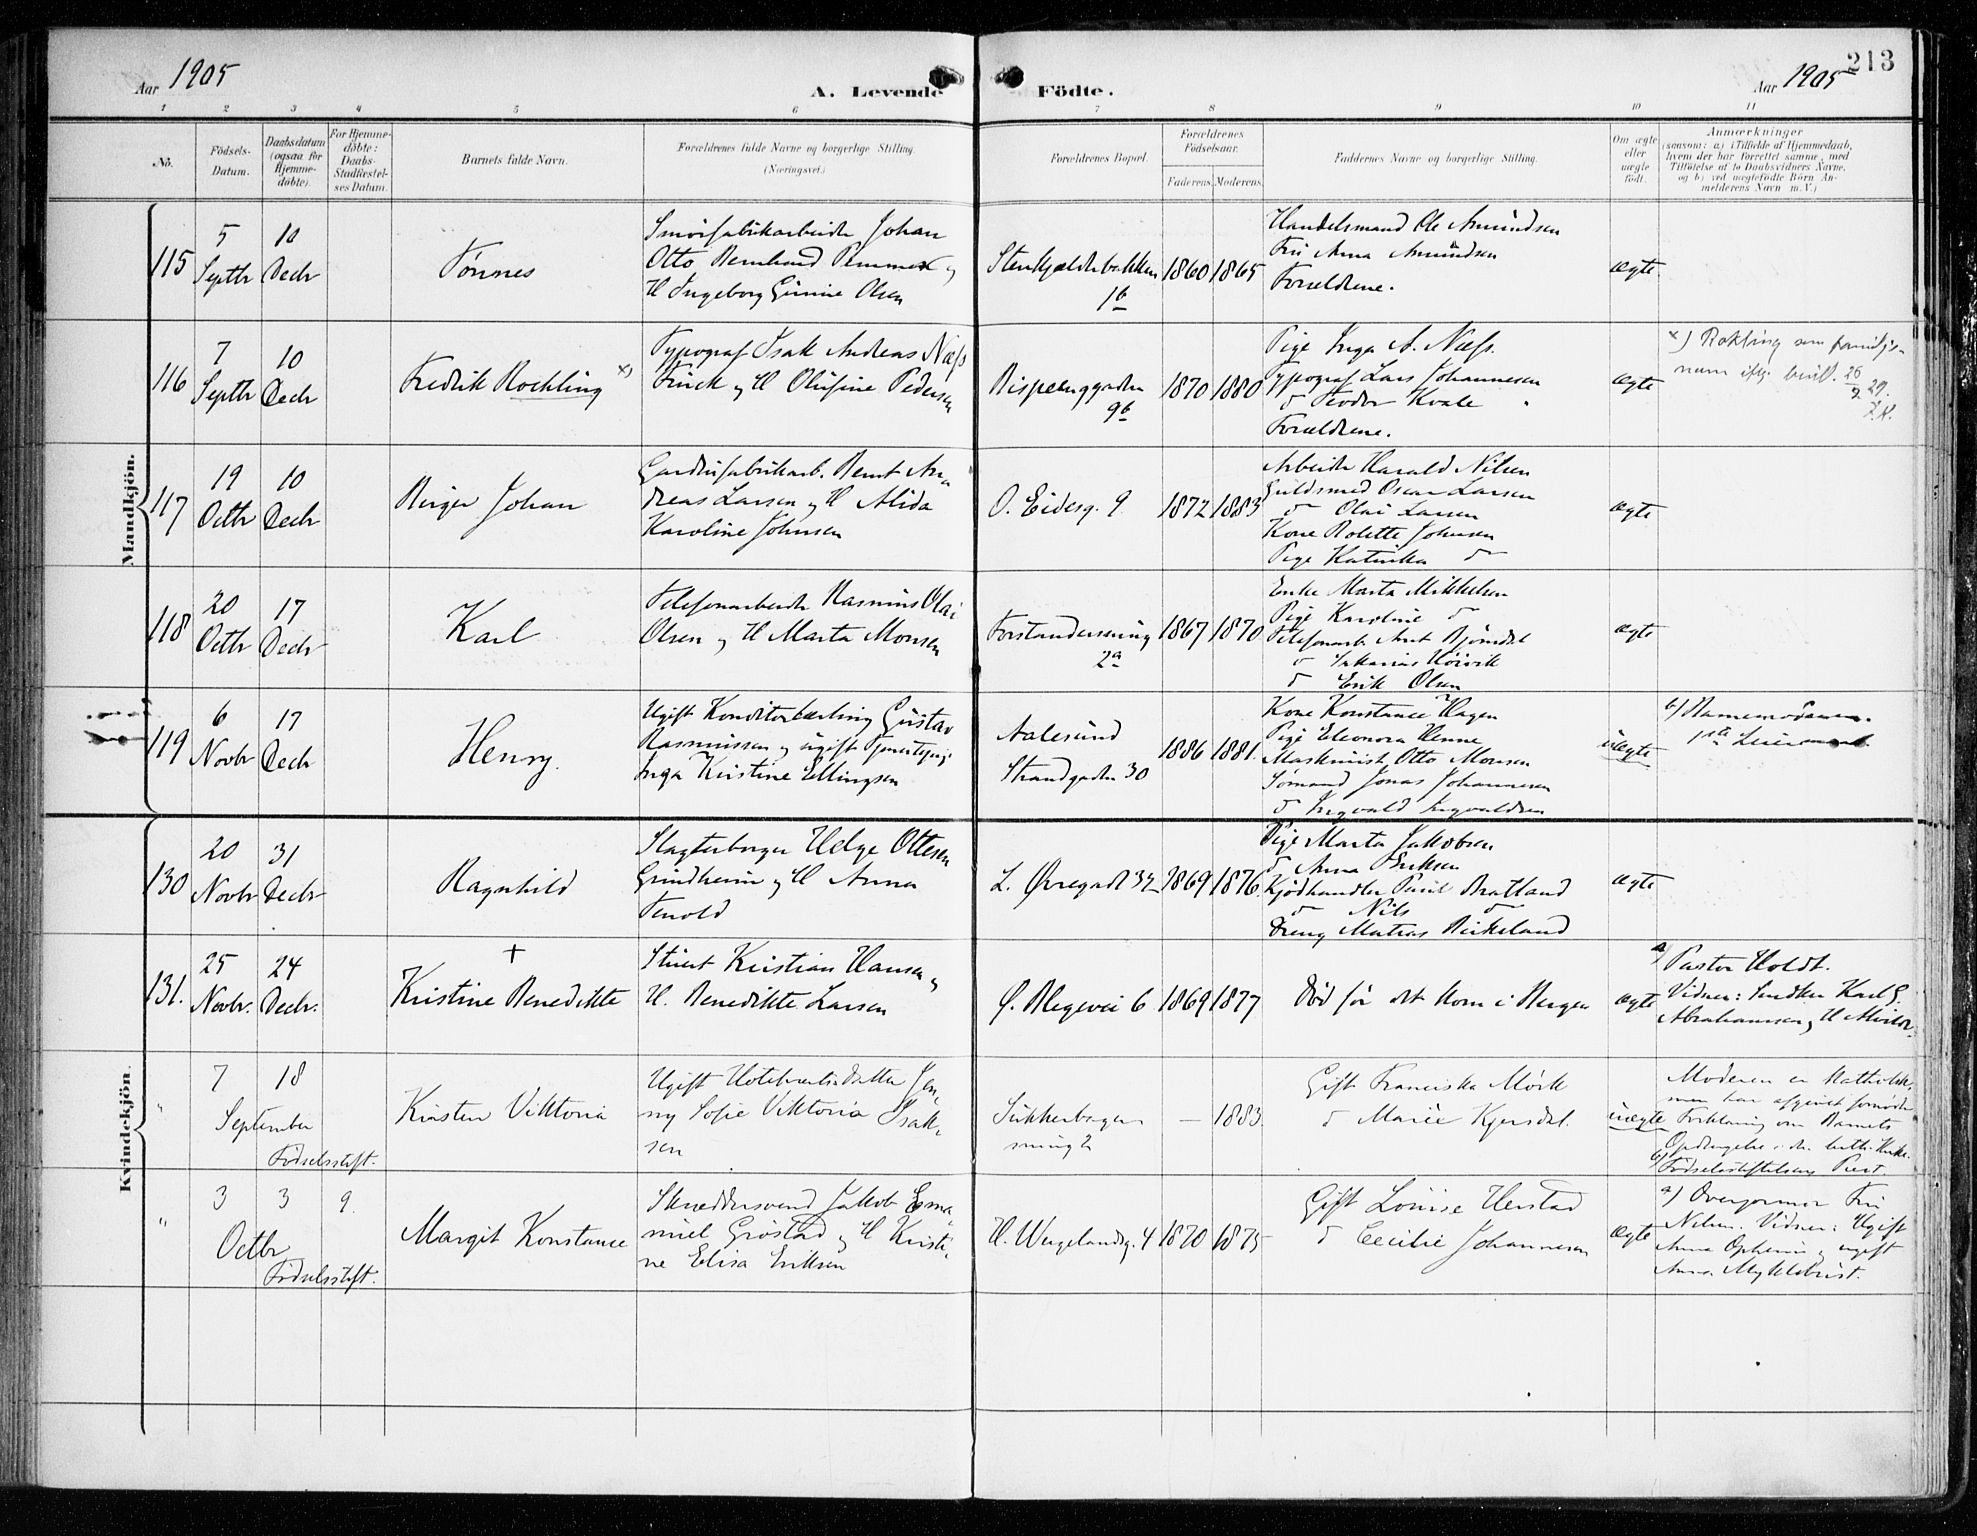 213
Aar 1905
A. Levende Födte.
Aar 1905
1 2 3 4 5 6 7 8 9 10 11
No.
Födsels-Datum.
Daabsdatum (ogsaa for Hjemme-döbte).
For Hjemme-döbte: Daabs-Stadfæstel-ses Datum.
Barnets fulde Navn.
Forældrenes fulde Navne og borgerlige Stilling.
(Næringsvei.)
Forældrenes Bopæl.
Forældrenes Födselsaar.
Faderens. Moderens.
Faddernes Navne og borgerlige Stilling.
Om ægte eller uægte födt.
Anmærkninger
(saasom: a) i Tilfælde af Hjemmedaab, hvem der har forrettet samme, med Tilföielse af to Daabsvidners Navne, og b) ved uægtefödte Börn An-melderens Navn m. V.)
Mandkjön.
115
5 Septbr
10 Decbr
Tønnes
Smørfabrikarbeider Johan
Otto Bernhard Pemmer og
H Ingeborg Gunine Olsen
Stenkjelderbakken
1b
1860 1865
Handelsmand Ole Amundsen
Fru Anna Amundsen
Forældrene.
ægte
116
7 Septbr
10 Decbr
Fredrik Rochling x)
Typograf Isak Andreas Næss
Frück og H Olufine Pedersen
Bispenggaden
9b
1870 1880
Pige Inga A. Næss.
Typograf Lars Johannesen
do Teodor Kvale
Forældrene.
ægte
x) Rokling som familje-
navn iflg. bevill. 26/9 29.
117
19 Octbr
10 Decbr
Birger Johan
Gardinfabrikarb. Bernt An-
dreas Larsen og H Alida
Karoline Johnsen
O. Eidesg. 9
1872 1883
Arbeider Harald Nilsen
Guldsmed Oscar Larsen
do Olai Larsen
Kone Rolette Johnsen
Pige Katinka do
ægte
118
20 Octbr
17 Decbr
Karl
Telefonarbeider Rasmus Olai
Olsen og H Marta Monsen
Forstandersmug
2a
1867 1870
Enke Marta Mikkelsen
Pige Karoline do
Telefonarb Arnt Bjørndal
do Sakarias Høivik
do Erik Olsen
ægte
119
6 Novbr
17 Decbr
Henry.
Ugift Konditorlærling Gustav
Rasmussen og ugift Tjenestepige
Inga Kristine Ellingsen
Aalesund
Strandgaden 30
1886 1881.
Kone Konstance Hagen
Pige Eleonora Henne
Maskinist Otto Monsen
Sømand Jonas Johannesen
do Ingvald Ingvaldsen
uægte
b) Barnemoderen.
Kvindekjön.
130
20 Novbr
31 Decbr
Ragnhild
Slagterborger Helge Ottesen
Grindheim og H Anna
Tenold
L. Øvregade 32
1869 1876.
Pige Marta Jakobsen
do Anna Eriksen
Kjødhandler Paul Bratland
do Nils do
Dreng Matias Birkeland
ægte
131.
25 Novbr.
24 Decbr.
+
Kristine Benedikte
Stuert Kristian Hansen og
H. Benedikte Larsen
Ø. Blegevei 6
1869 1877
Død før det kom i Kirgen
ægte
a) Pastor Holdt.
Vidner: Snedker Karl G.
Abrahamsen og H
"
7 18
September
Fødselsstift.
Kirsten Viktoria
Ugift Hotelværtsdatter Jen-
ny Sofie Viktoria Isak-
sen
Sukkerhusgr
smug 2
— 1883.
Gift Franciska Mörk
do Marie Kjersdal.
uægte
Moderen er Katholsk,
men har afgivet fornøden
Forklaring om Barnets
Opdragelse i den luth. Kirke.
b) Fødselsstiftelsens Præst.
"
3 3 9.
Octbr
Fødselsstift.
Margit Konstance
Skræddersvend Jakob Ema-
nuel Grøstad og H Kristi-
ne Elisa Eriksen
H. Wergelandsg. 4
1870 1875
Gift Louise Herstad
do Cecilie Johannesen
ægte
a) Overjormor Fru
Nilsen. Vidner: Ugift
Anna Opheim og ugift
Anna Myklebust.